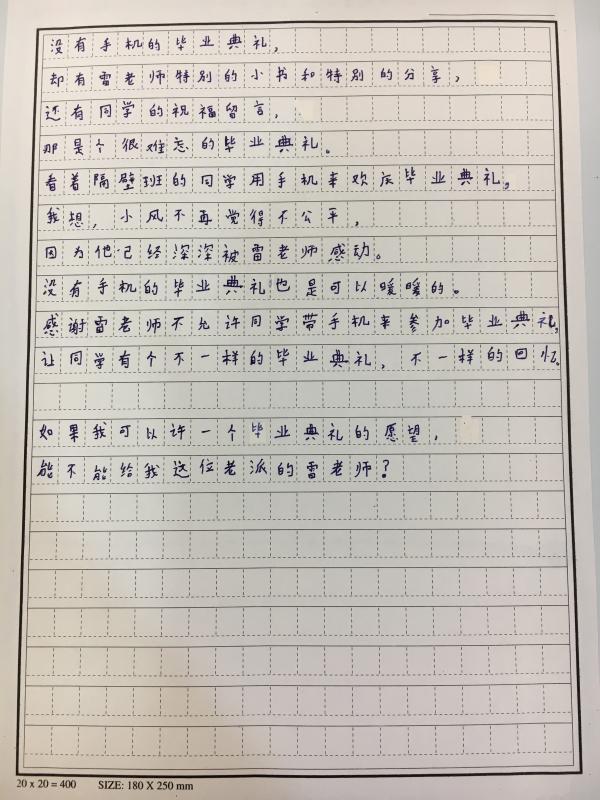 没有手机的毕业典礼，
却有雷老师特别的小书和特别的分享，
还有同学的祝福留言，
那是个很难忘的毕业典礼。
看着隔壁班的同学用手机来欢庆毕业典礼，
我想，小风不再觉得不公平，
因为他已经深深被雷老师感动。
没有手机的毕业典礼也是可以暖暖的。
感谢雷老师不允许同学带手机来参加毕业典礼，
让同学有个不一样的毕业典礼，不一样的回忆。
如果我可以许一个毕业典礼的愿望，
能不能给我这位老派的雷老师？
20 x 20 = 400 SIZE: 180 X 250 mm